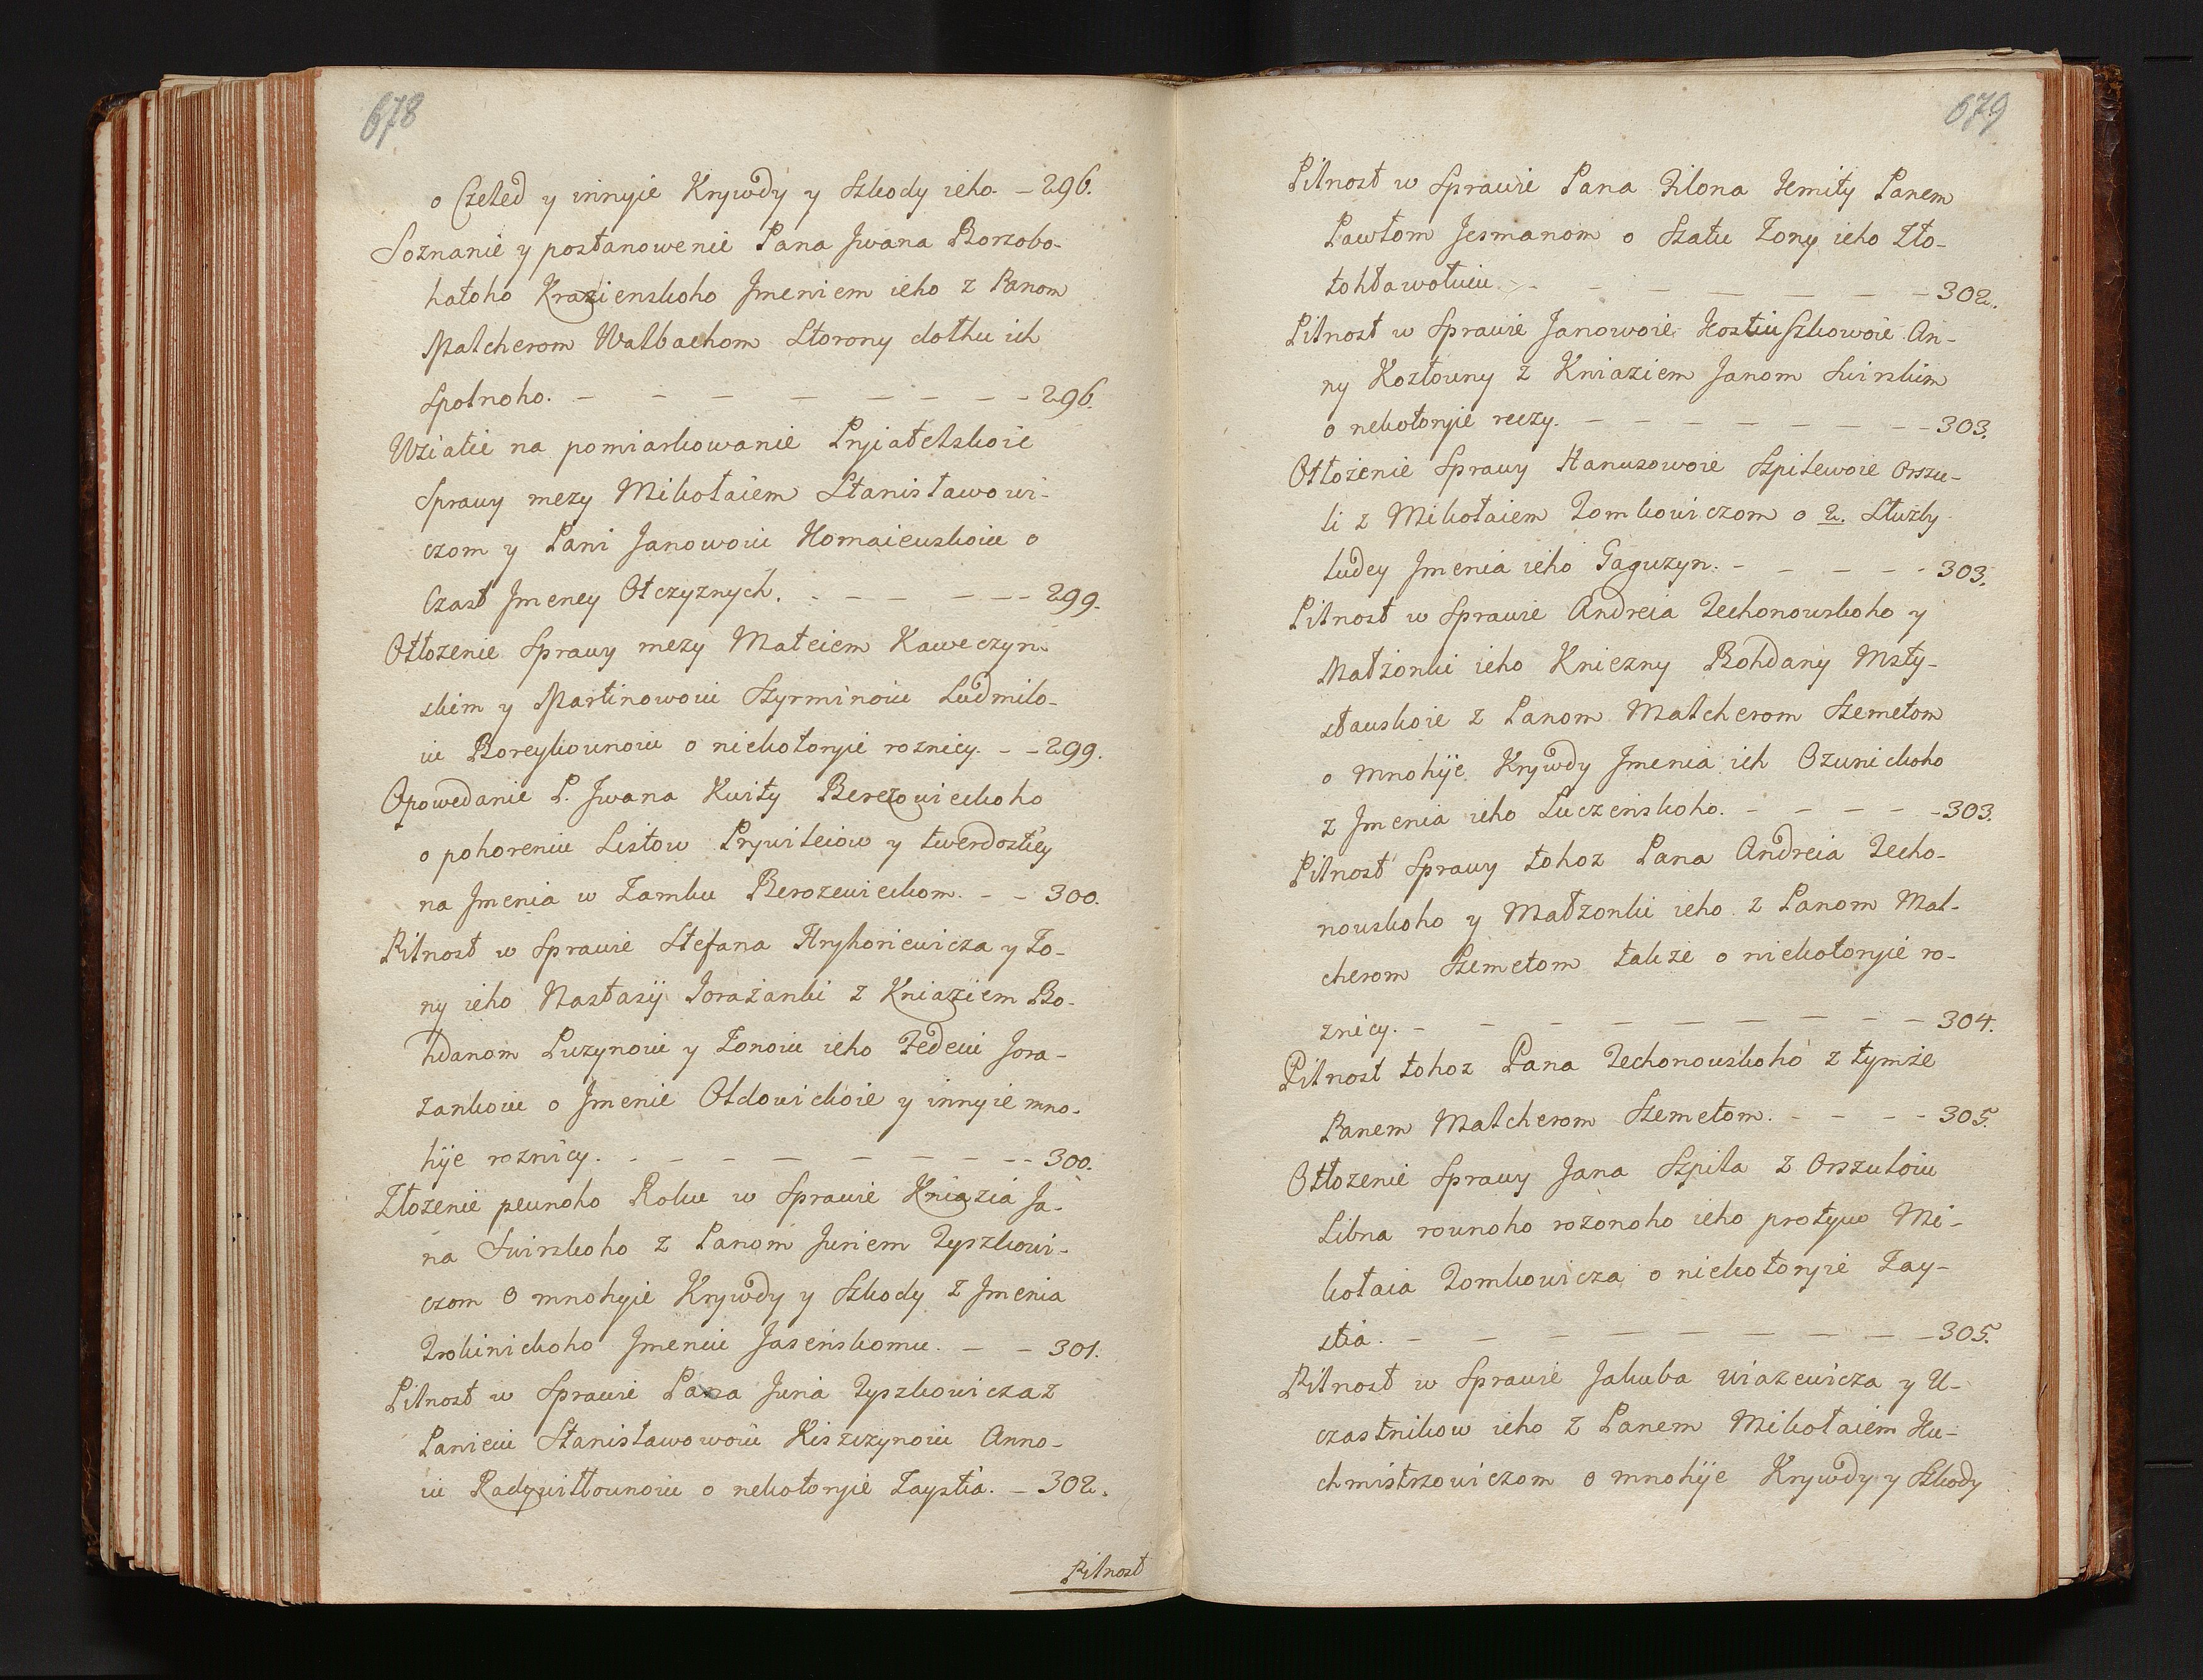 678
o Czeled y innyie Krywdy y Szkody ieho. - 296.
Soznanie y postanowenie Pana Jwana Borzobo-
hatoho Krazienskoho Jmeniem ieho z Panom
Malcherom Walbachom Storony dothu ich
Spolnoho. - - - - - - - - 296.
Wziatie na pomiarkowanie Pryiatelskoie
Sprawy mezy Mikołaiem Stanisławowi-
czom y Pani Janowoiu Homaieuskoiu o
Czast Jmeney Otczyznych. - - - - - - 299.
Otłozenie Sprawy mezy Mateiem Kaweczyn-
skiem y Martinowoiu Szyrminoiu Ludmilo-
iu Boreykounoiu o niekotoryie roznicy. - - 299.
Opowedanie P. Jwana Kwity Berezowieckoho
o pohoreniu Listow Prywileiow y twerdostiey
na Jmenia w Zamku Berozewieckom. - - 300.
Pilnost w Sprawie Stefana Hryhoriewicza y Zo-
ny ieho Nastasij Jorażanki z Kniaziem Bo-
hdanom Puzynoiu y Zonoiu ieho Fedeiu Jora-
zankoiu o Jmenie Otdowickoie y innyie mno-
hije roznicy. - - - - - - - - 300.
Złozenie peunoho Roku w Sprawie Kniazia Ja-
na Swirskoho z Panom Juriem Tyszkowi-
czom o mnohyie Krywdy y Szkody z Jmenia
Trokinickoho Jmeniu Jaseńskomu. - - 301.
Pilnost w Sprawie Pana Juria Tyszkowicza z
Panieiu Stanisławowoiu Kiszczynoiu Anno-
iu Radywiłounoiu o nekotoryie Zaystia. - 302.
Pilnost
679
Pilnost w Sprawie Pana Filona Kmity Panem
Pawłom Jesmanom o Szatu Zony ieho Zło-
tohławołuiu - - - - - - - 302.
Pilnost w Sprawie Janowoie Kostiuszkowoie An-
ny Kozłouny z Kniaziem Janom Swirskim
o nekotoryie reczy. - - - - - - - - 303.
Otłożenie Sprawy Hanusowoie Szpilewoie Orszu-
li z Mikołaiem Tomkowiczom o 2. Służby
ludey Jmenia ieho Gaguzyn. - - - - - 303.
Pilnost w Sprawie Andreia Techonouskoho y
Małżonki ieho Kniezny Bohdany Msty-
sławskoie z Panom Malcherom Szemetom
o mnohije Krywdy Jmenia ich Ozunickoho
z Jmenia ieho Luczeńskoho. - - - - - 303.
Pilnost Sprawy tohoz Pana Andreia Techo-
nouskoho y Małzonki ieho z Panom Mal-
cherom Szemetom takze o niekotoryie ro-
znicy. - - - - - - - - - 304.
Pilnost tohoz Pana Techonouskoho z tymże
Panem Malcherom Szemetom. - - - - 305.
Otłozenie Sprawy Jana Szpila z Orszuloiu
Libna rounoho rozonoho ieho protywo Mi-
kołaia Tomkowicza o niekotoryie Zay-
stia. - - - - - - - - - 305.
Pilnost w Sprawie Jakuba Wiazewicza y U-
czastnikow ieho z Panem Mikołaiem Ku-
chmistrzowiczom o mnohije Krywdy y Szkody